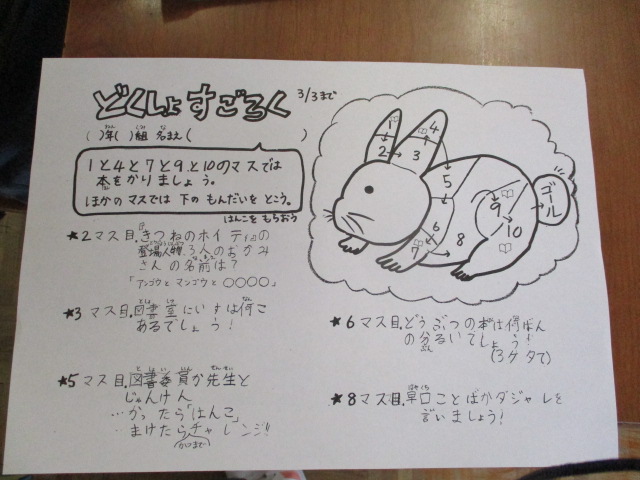 どくしょ すごろく 3/3まで
( )年( )組 名まえ( )
1と4と7と9と10のマスでは
本をかりましょう。
ほかのマスでは 下の もんだいを とこう。
はんこを もらおう
★2マス目.きつねのホイティの
登場人物、3人のおかみ
さんの名前は?
「アンゴウと マンゴウと ○○○○」
★3マス目.図書室にいすは何こ
あるでしょう!
★5マス目.図書委員か先生と
じゃんけん
…かったら「はんこ」
…まけたらチャレンジ!!
★6マス目.どうぶつの本は何ばん
の分るいでしょう!
(3ケタで)
★8マス目.早口ことばかダジャレを
言いましょう!
1
2
3
4
5
6
7
8
9
10
ゴール